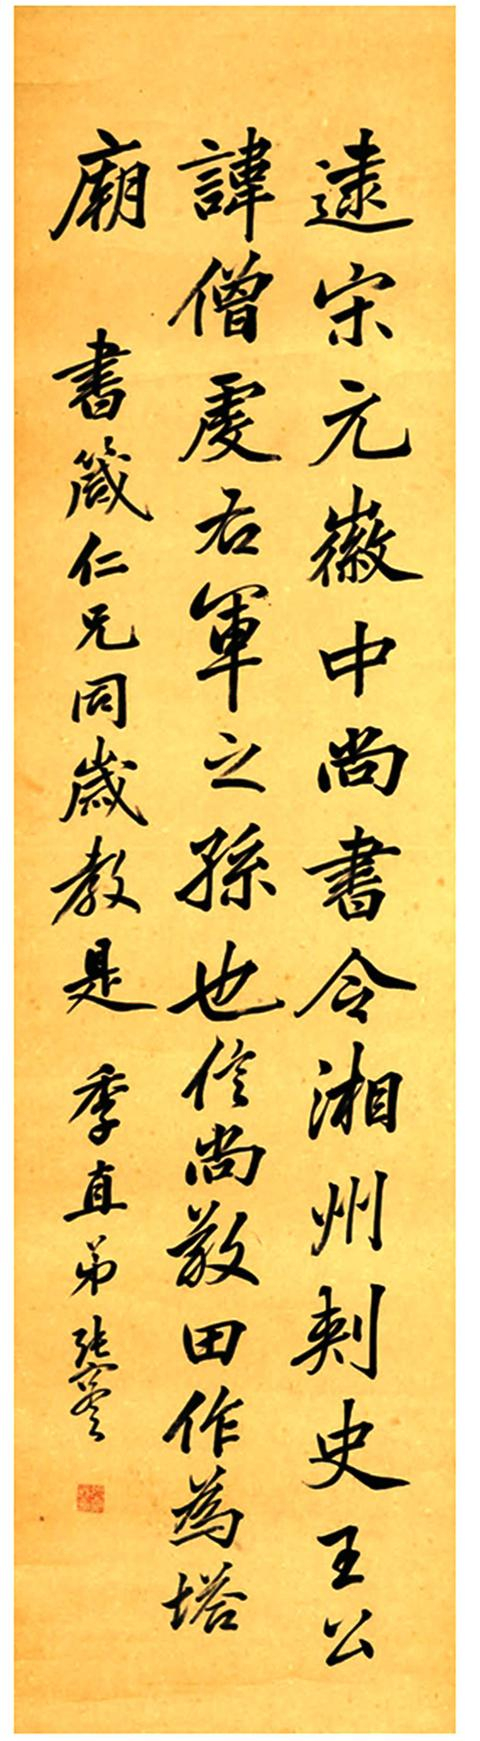 逮宋元徽中尚書令湘州刺史王公
諱僧虔右軍之孫也信尚敬田作為塔
廟 書箴仁兄同歲教是 季直弟張謇